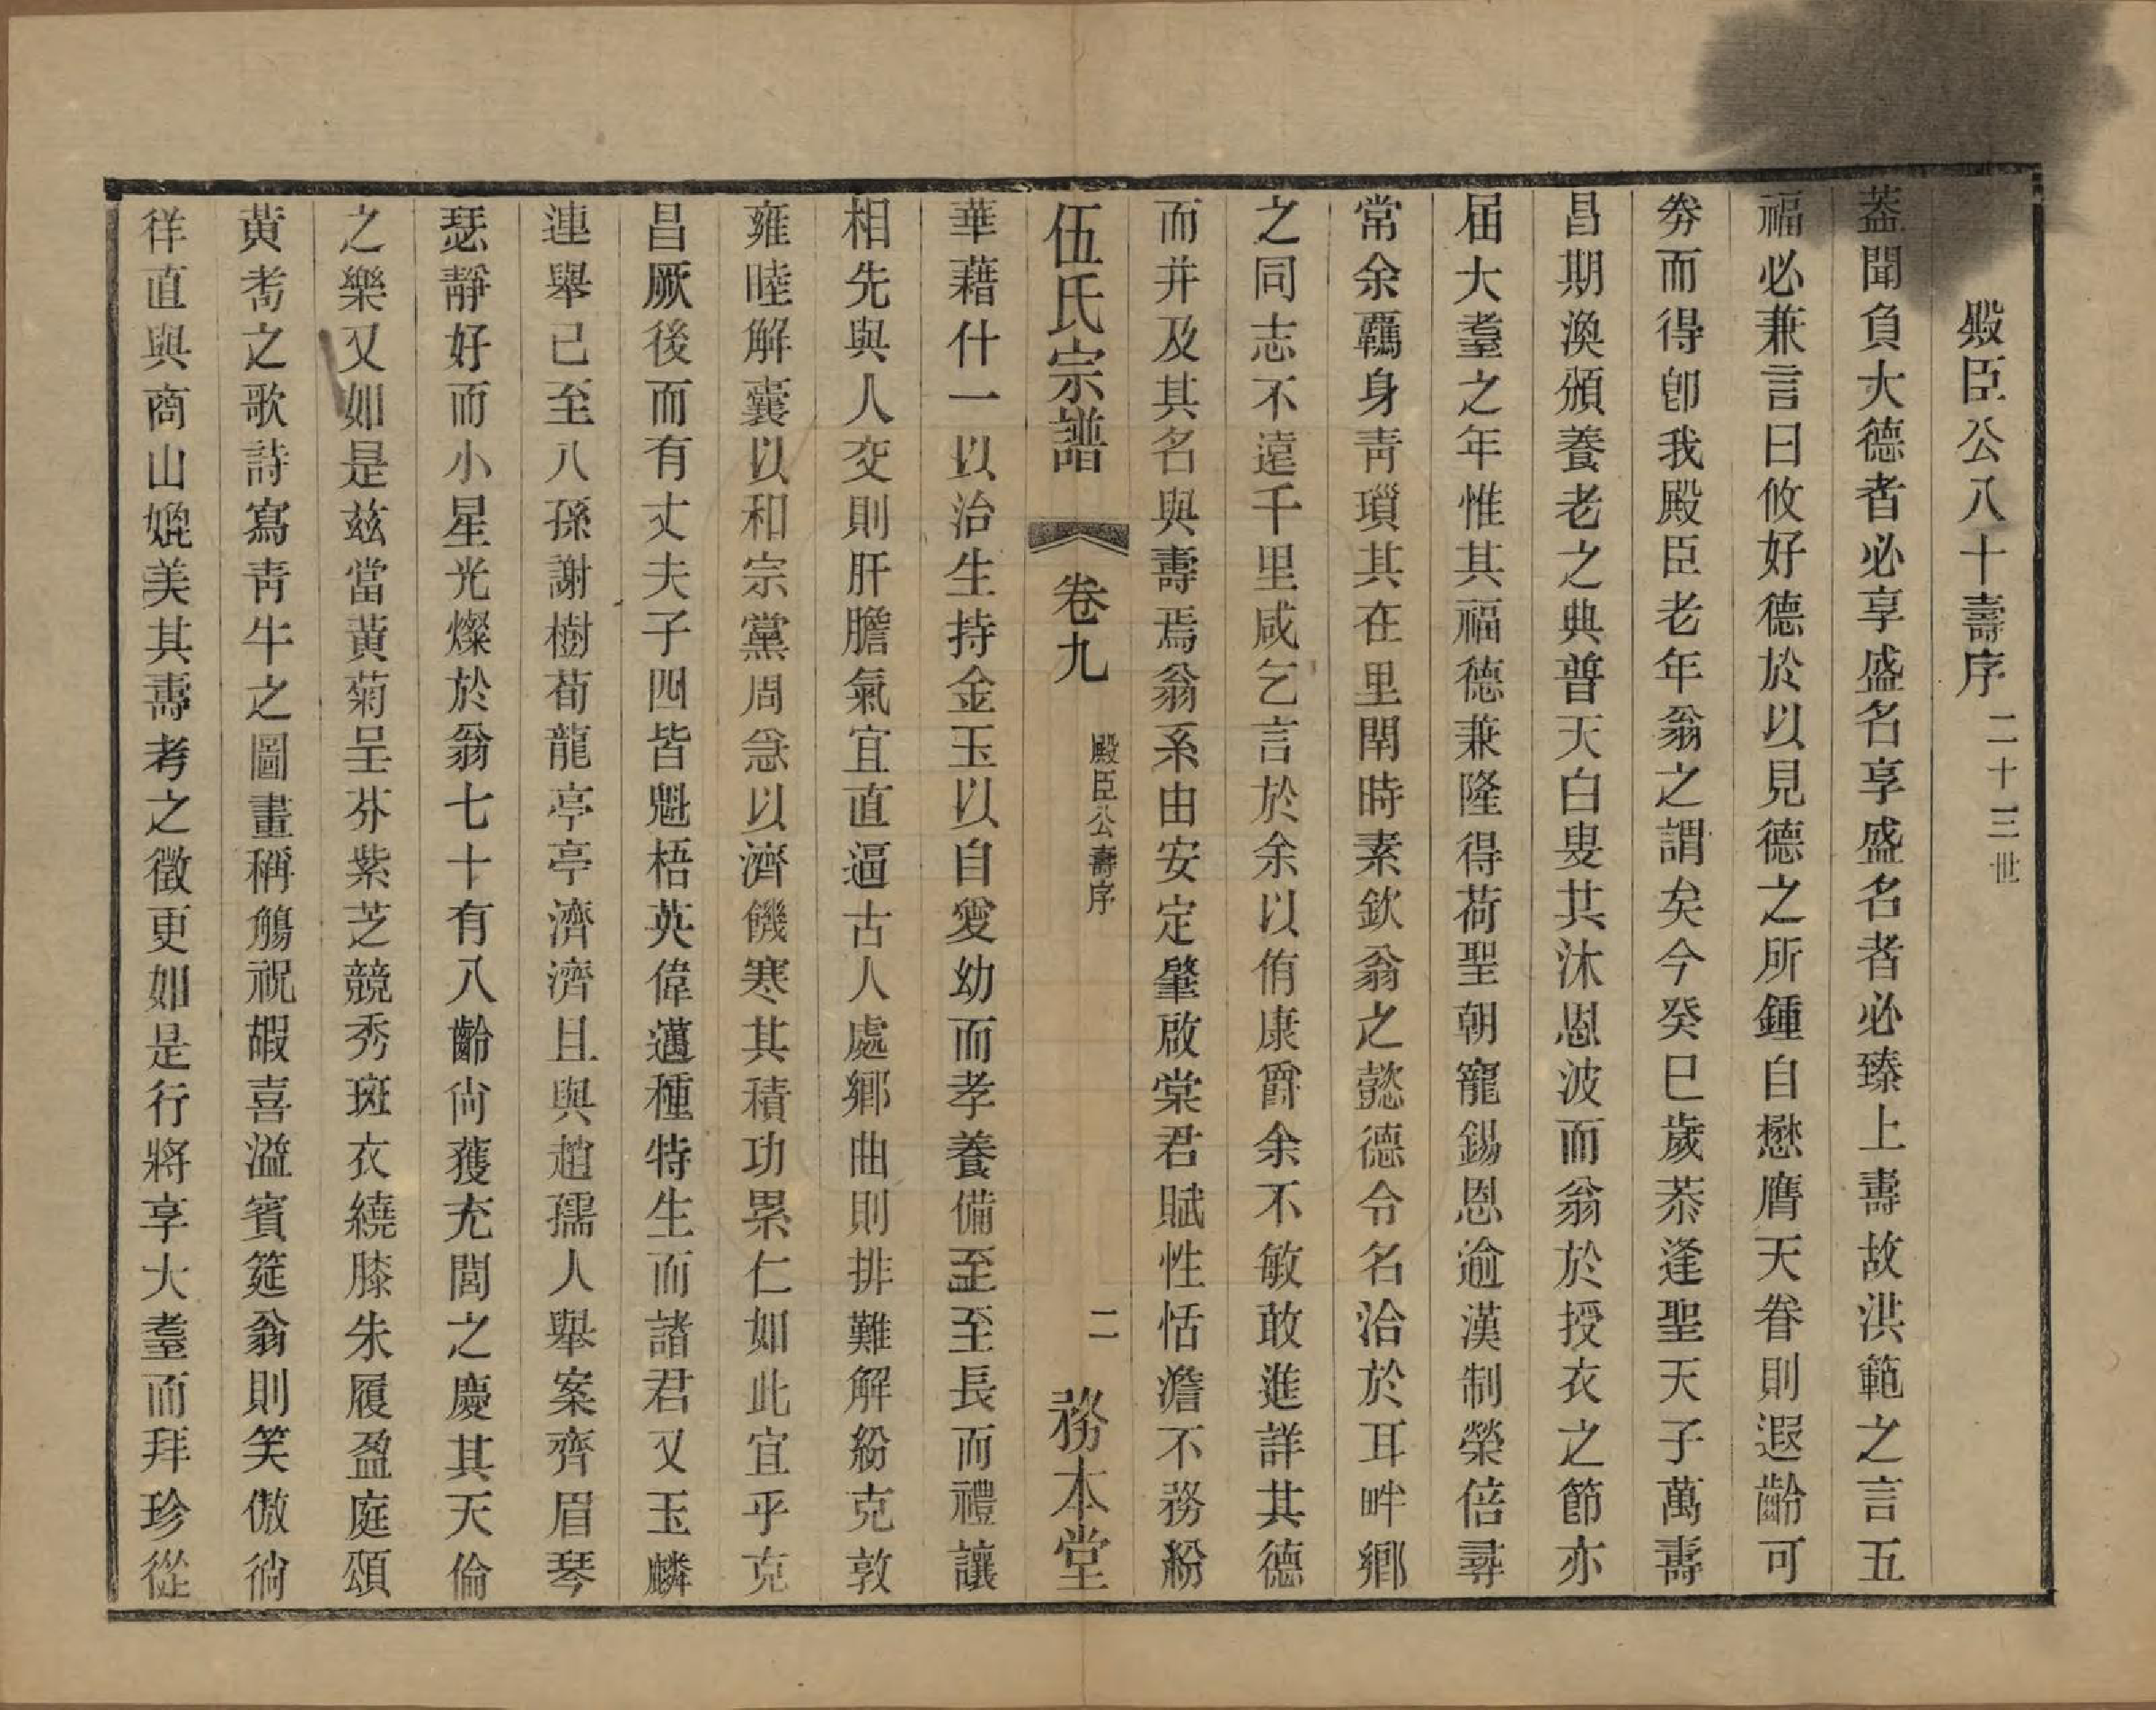 殿臣公八十壽序 二十三世
葢聞負大德者必享盛名享盛名者必臻上壽故洪範之言五
福必兼言曰攸好德於以見德之所鍾自懋膺天眷則遐齡可
劵而得卽我殿臣老年翁之謂矣今癸巳歲恭逢聖天子萬壽
昌期渙頒養老之典普天白叟共沐恩波而翁於授衣之節亦
屆大耋之年惟其福德兼隆得荷聖朝寵錫恩逾漢制榮倍尋
常余覊身靑瑣其在里閈時素欽翁之懿德令名洽於耳畔鄕
之同志不遠千里咸乞言於余以侑康爵余不敏敢進詳其德
而并及其名與壽焉翁系由安定肇啟棠君賦性恬澹不務紛
伍氏宗譜 卷九 殿臣公壽序 二 務本堂
華藉什一以治生持金玉以自愛幼而孝養備至至長而禮讓
相先與人交則肝膽氣宜直逼古人處鄕曲則排難解紛克敦
雍睦解囊以和宗黨周急以濟饑寒其積功累仁如此宜乎克
昌厥後而有丈夫子四皆魁梧英偉邁種特生而諸君又玉麟
連舉已至八孫謝樹荀龍亭亭濟濟且與趙孺人舉案齊眉琴
瑟靜好而小星光燦於翁七十有八齡尙獲充閭之慶其天倫
之樂又如是茲當黃菊呈芬紫芝競秀斑衣繞膝朱履盈庭頌
黃耉之歌詩寫靑牛之圖畫稱觴祝嘏喜溢賓筵翁則笑傲徜
徉直與商山媲美其壽考之徵更如是行將享大耋而拜珍從